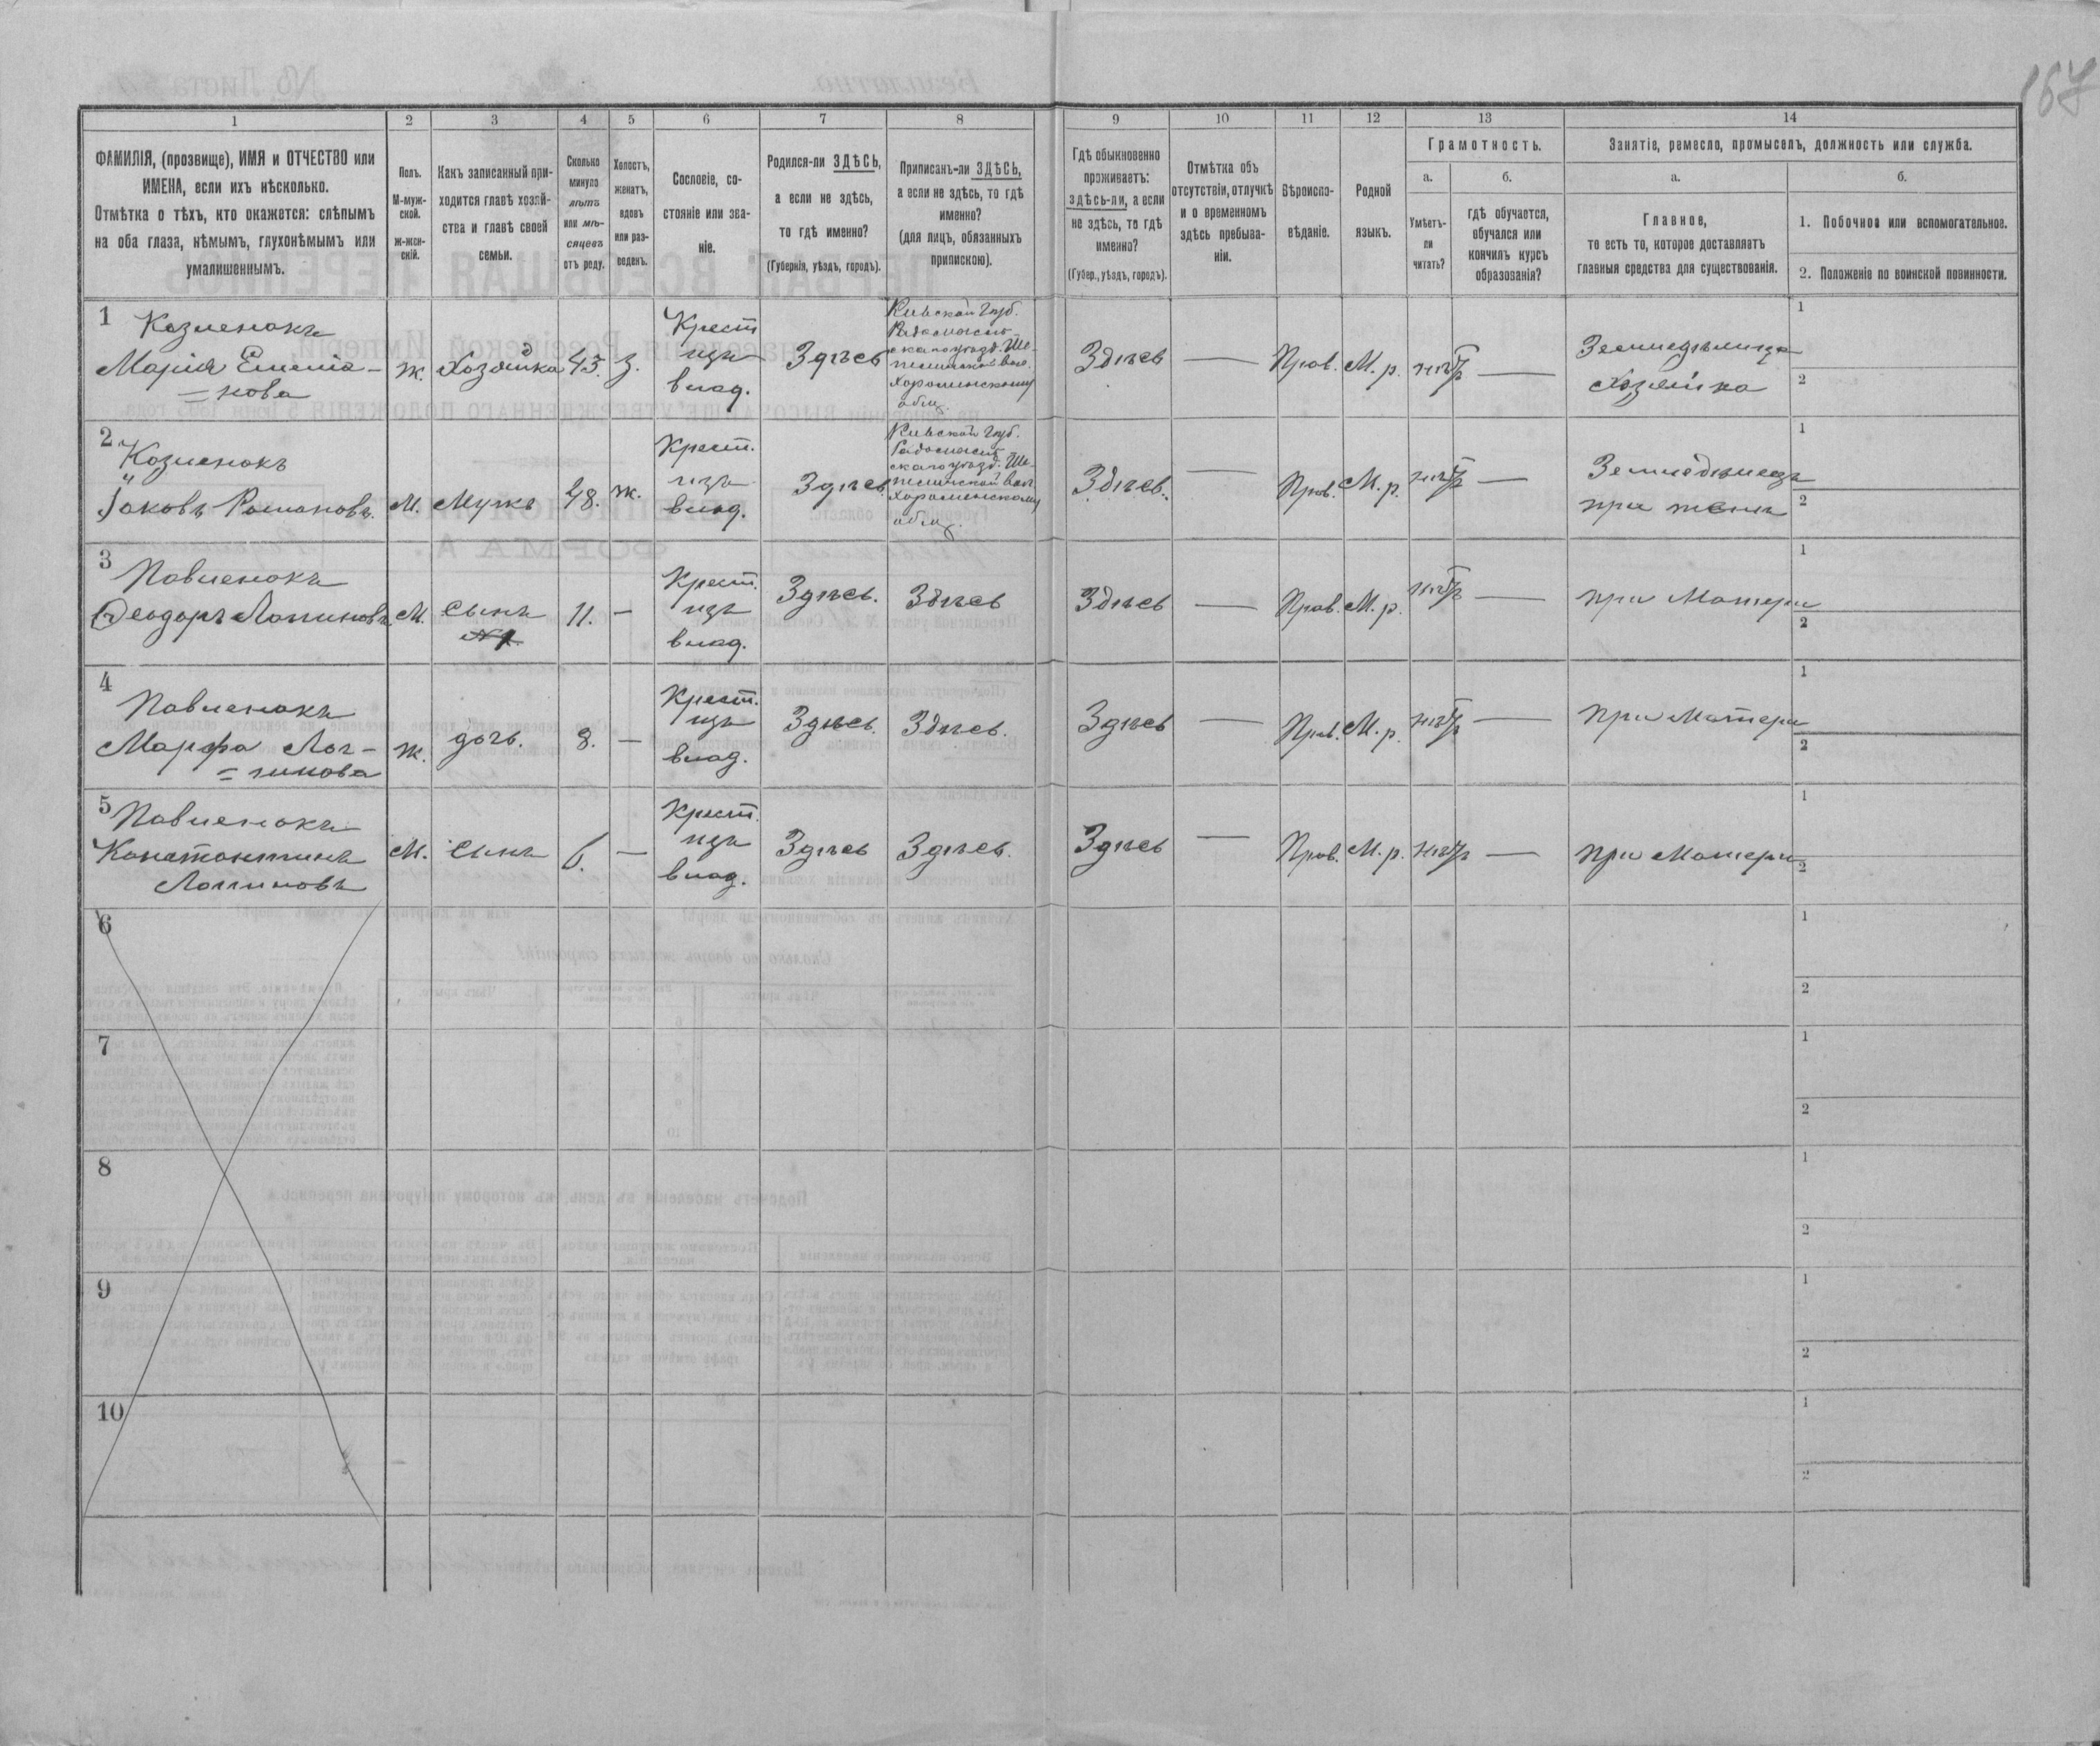 167
1
2
3
4
5
6
7
8
9
10
11
12
13
14
ФАМИЛІЯ, (прозвище), ИМЯ и ОТЧЕСТВО или
ИМЕНА, если ихъ нѣсколько.
Отмѣтка о тѣхъ, кто окажется: слѣпымъ
на оба глаза, нѣмымъ, глухонѣмымъ или
умалишеннымъ.
Полъ.
М-муж-
ской.
ж-жен-
скій.
Какъ записанный при-
ходится главѣ хозяй-
ства и главѣ своей
семьи.
Сколько
минуло
лѣтъ
или мѣ-
сяцевъ
отъ роду.
Холостъ,
женатъ,
вдовъ
или раз-
веденъ.
Сословіе, со-
стояніе или зва-
ніе.
Родился-ли ЗДѢСЬ,
а если не здѣсь,
то гдѣ именно?
(Губернія, уѣздъ, городъ).
Приписанъ-ли ЗДѢСЬ,
а если не здѣсь, то гдѣ
именно?
(для лицъ, обязанныхъ
припискою).
Гдѣ обыкновенно
проживаетъ:
здѣсь-ли, а если
не здѣсь, то гдѣ
именно?
(Губер., уѣздъ, городъ).
Отмѣтка объ
отсутствіи, отлучкѣ
и о временномъ
здѣсь пребыва-
ніи.
Вѣроиспо-
вѣданіе.
Родной
языкъ.
Грамотность.
а.
Умѣетъ-
ли
читать?
б.
гдѣ обучается,
обучался или
кончилъ курсъ
образованія?
Занятіе, ремесло, промыселъ, должность или служба.
а.
Главное,
то есть то, которое доставляетъ
главныя средства для существованія.
б.
1. Побочное или вспомогательное.
2. Положеніе по воинской повинности.
1
Козленокъ
Марія Емелія-
=нова
ж.
Хозяйка
43.
З.
Крест
изъ
влад.
Здѣсь
Кіевской губ.
Радомысль-
скаго уѣзд. Ше-
пеличской вол.
общ.
Здѣсь
—
Прав.
М. р.
нѣтъ
—
Земледѣлица
Хозяйка
1
2
2
Козленокъ
Іаковъ Романовъ.
М.
Мужъ
48.
ж.
Крест.
изъ
влад.
Здѣсь.
Кіевской губ.
Радомысль-
скаго уѣзд. Ше-
пеличской вол.
общ.
Здѣсь.
—
Прав.
М. р.
нѣтъ
—
Земледѣлецъ
при женѣ
1
2
3
Павленокъ
Ѳеодоръ Логиновъ.
М.
Сынъ
№1.
11.
—
Крест.
изъ
влад.
Здѣсь.
Здѣсь
Здѣсь
—
Прав.
М. р.
нѣтъ
—
при Матери
1
2
4
Павленокъ
Марфа Лог-
=инова
ж.
дочь.
8.
—
Крест.
изъ
влад.
Здѣсь.
Здѣсь.
Здѣсь
—
Прав.
М. р.
нѣтъ
—
при Матери
1
2
5
Павленокъ
Константинъ
Логиновъ
М.
Сынъ
6.
—
Крест.
изъ
влад.
Здѣсь
Здѣсь.
Здѣсь
—
Прав.
М. р.
нѣтъ
—
при Матери
1
2
6
1
2
7
1
2
8
1
2
9
1
2
10
1
2